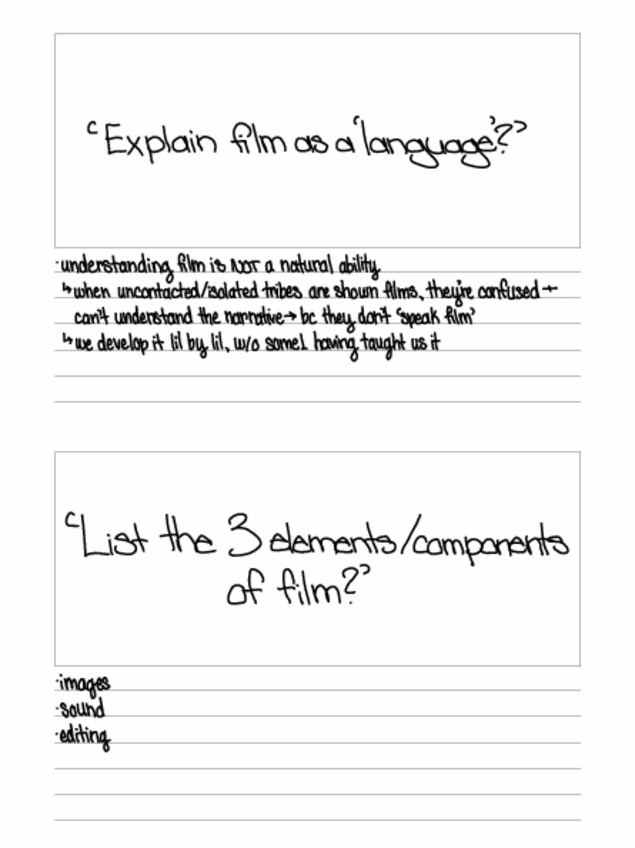 "Explain film as a 'language'?"
·understanding film is NOT a natural ability
↳when uncontacted/isolated tribes are shown films, they're confused +
can't understand the narrative→ bc they don't 'speak film'
↳we develop it lil by lil, w/o some1 having taught us it
"List the 3 elements/components
of film?"
·images
·sound
·editing